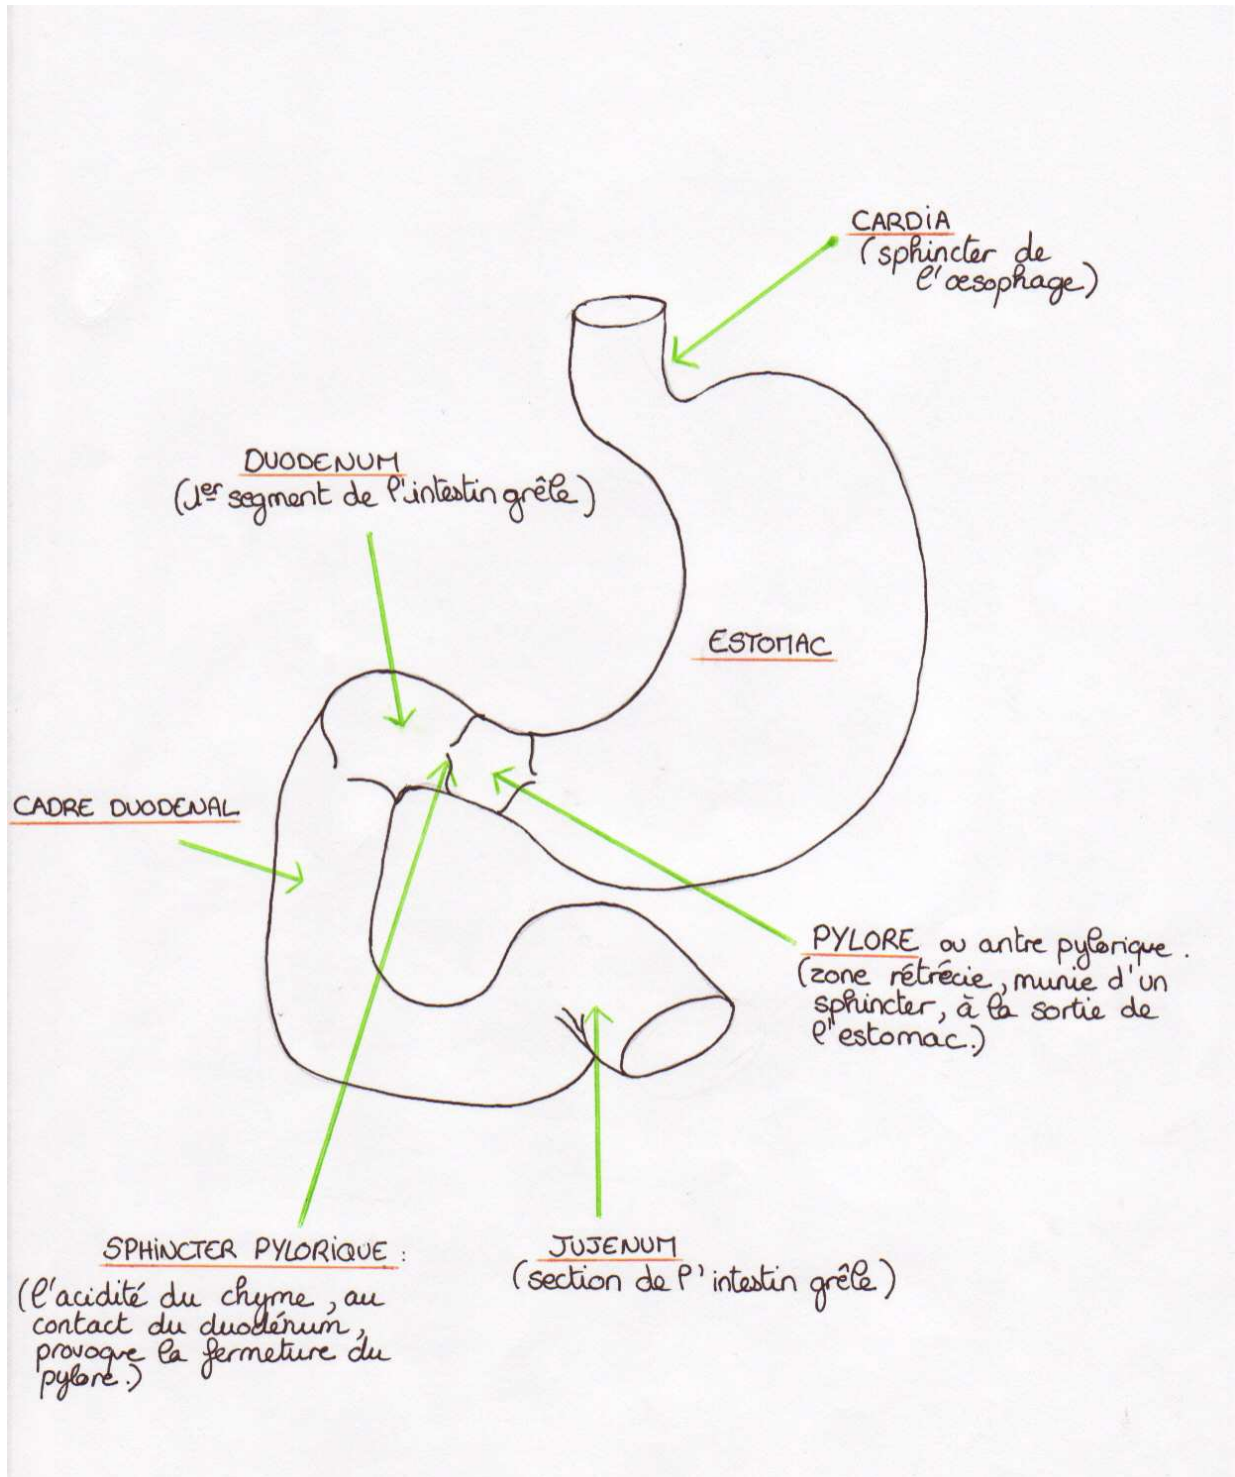 CARDIA
(sphincter de
l'oesophage)
DUODENUM
(1er segment de l'intestin grêle)
ESTOMAC
CADRE DUODENAL
PYLORE ou antre pylorique.
(zone rétrécie, munie d'un
sphincter, à la sortie de
l'estomac.)
SPHINCTER PYLORIQUE :
(l'acidité du chyme, au
contact du duodénum,
provoque la fermeture du
pylore.)
JUJENUM
(section de l'intestin grêle)